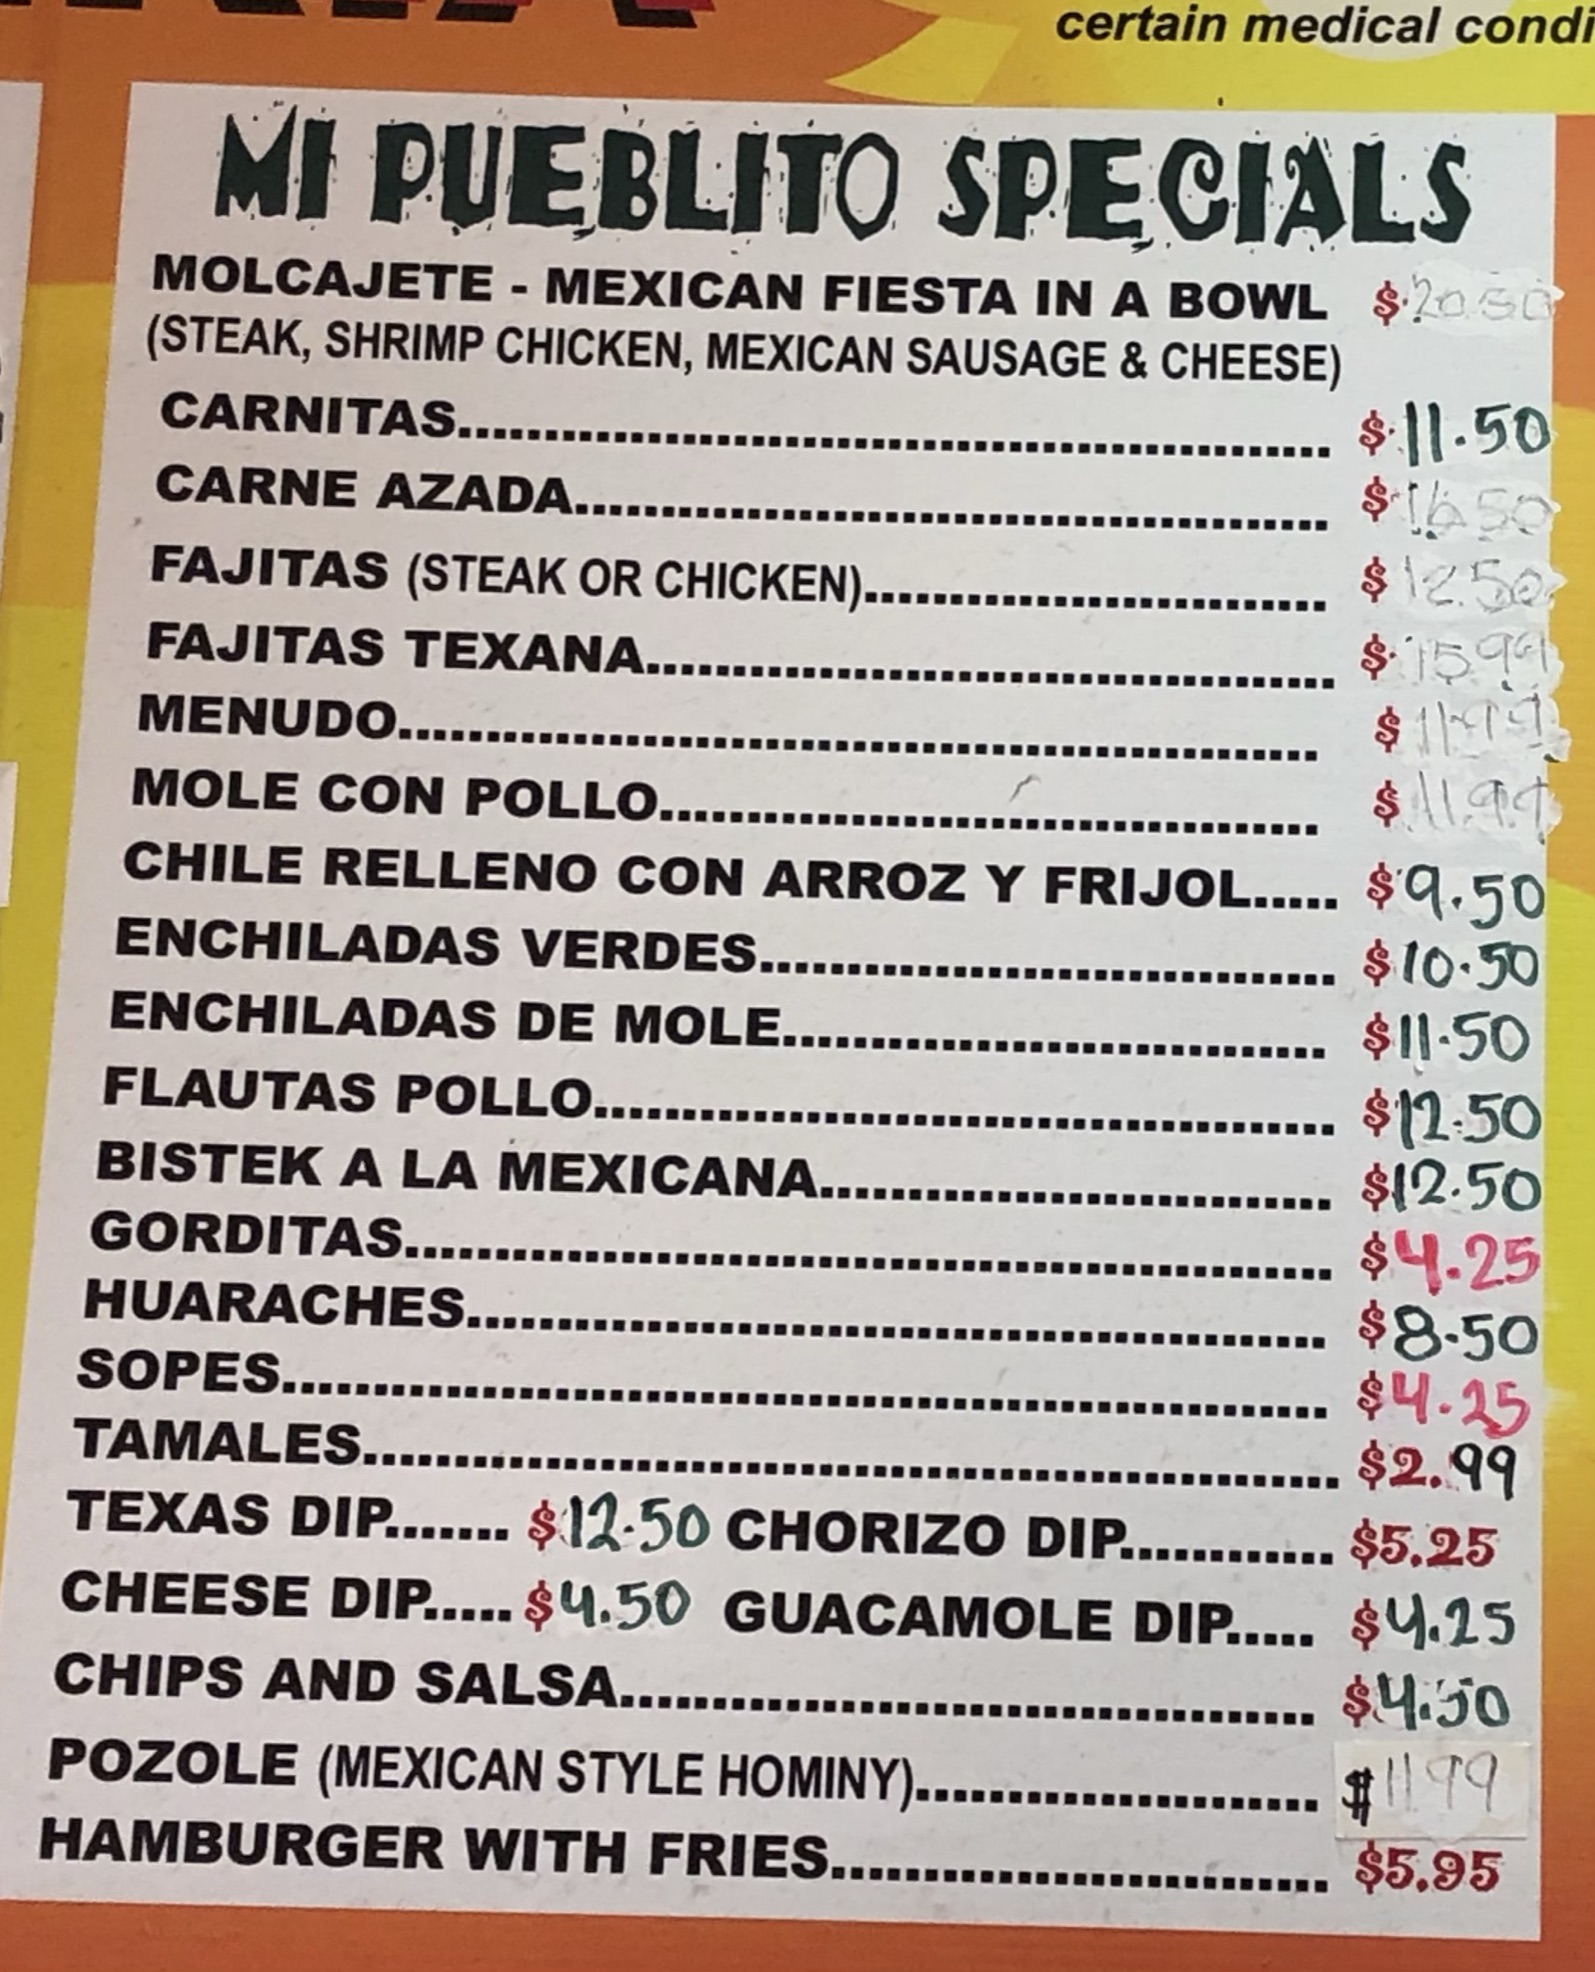 certain medical condi
MI PUEBLITO SPECIALS
MOLCAJETE - MEXICAN FIESTA IN A BOWL $20.50
(STEAK, SHRIMP CHICKEN, MEXICAN SAUSAGE & CHEESE)
CARNITAS........................................................ $11.50
CARNE AZADA................................................ $16.50
FAJITAS (STEAK OR CHICKEN)............................. $12.50
FAJITAS TEXANA............................................ $15.99
MENUDO........................................................ $11.99
MOLE CON POLLO.......................................... $11.99
CHILE RELLENO CON ARROZ Y FRIJOL..... $9.50
ENCHILADAS VERDES..................................... $10.50
ENCHILADAS DE MOLE................................... $11.50
FLAUTAS POLLO............................................. $12.50
BISTEK A LA MEXICANA................................ $12.50
GORDITAS....................................................... $4.25
HUARACHES................................................... $8.50
SOPES.............................................................. $4.25
TAMALES......................................................... $2.99
TEXAS DIP....... $12.50 CHORIZO DIP............ $5.25
CHEESE DIP..... $4.50 GUACAMOLE DIP..... $4.25
CHIPS AND SALSA.......................................... $4.50
POZOLE (MEXICAN STYLE HOMINY)........................ $11.99
HAMBURGER WITH FRIES............................. $5.95